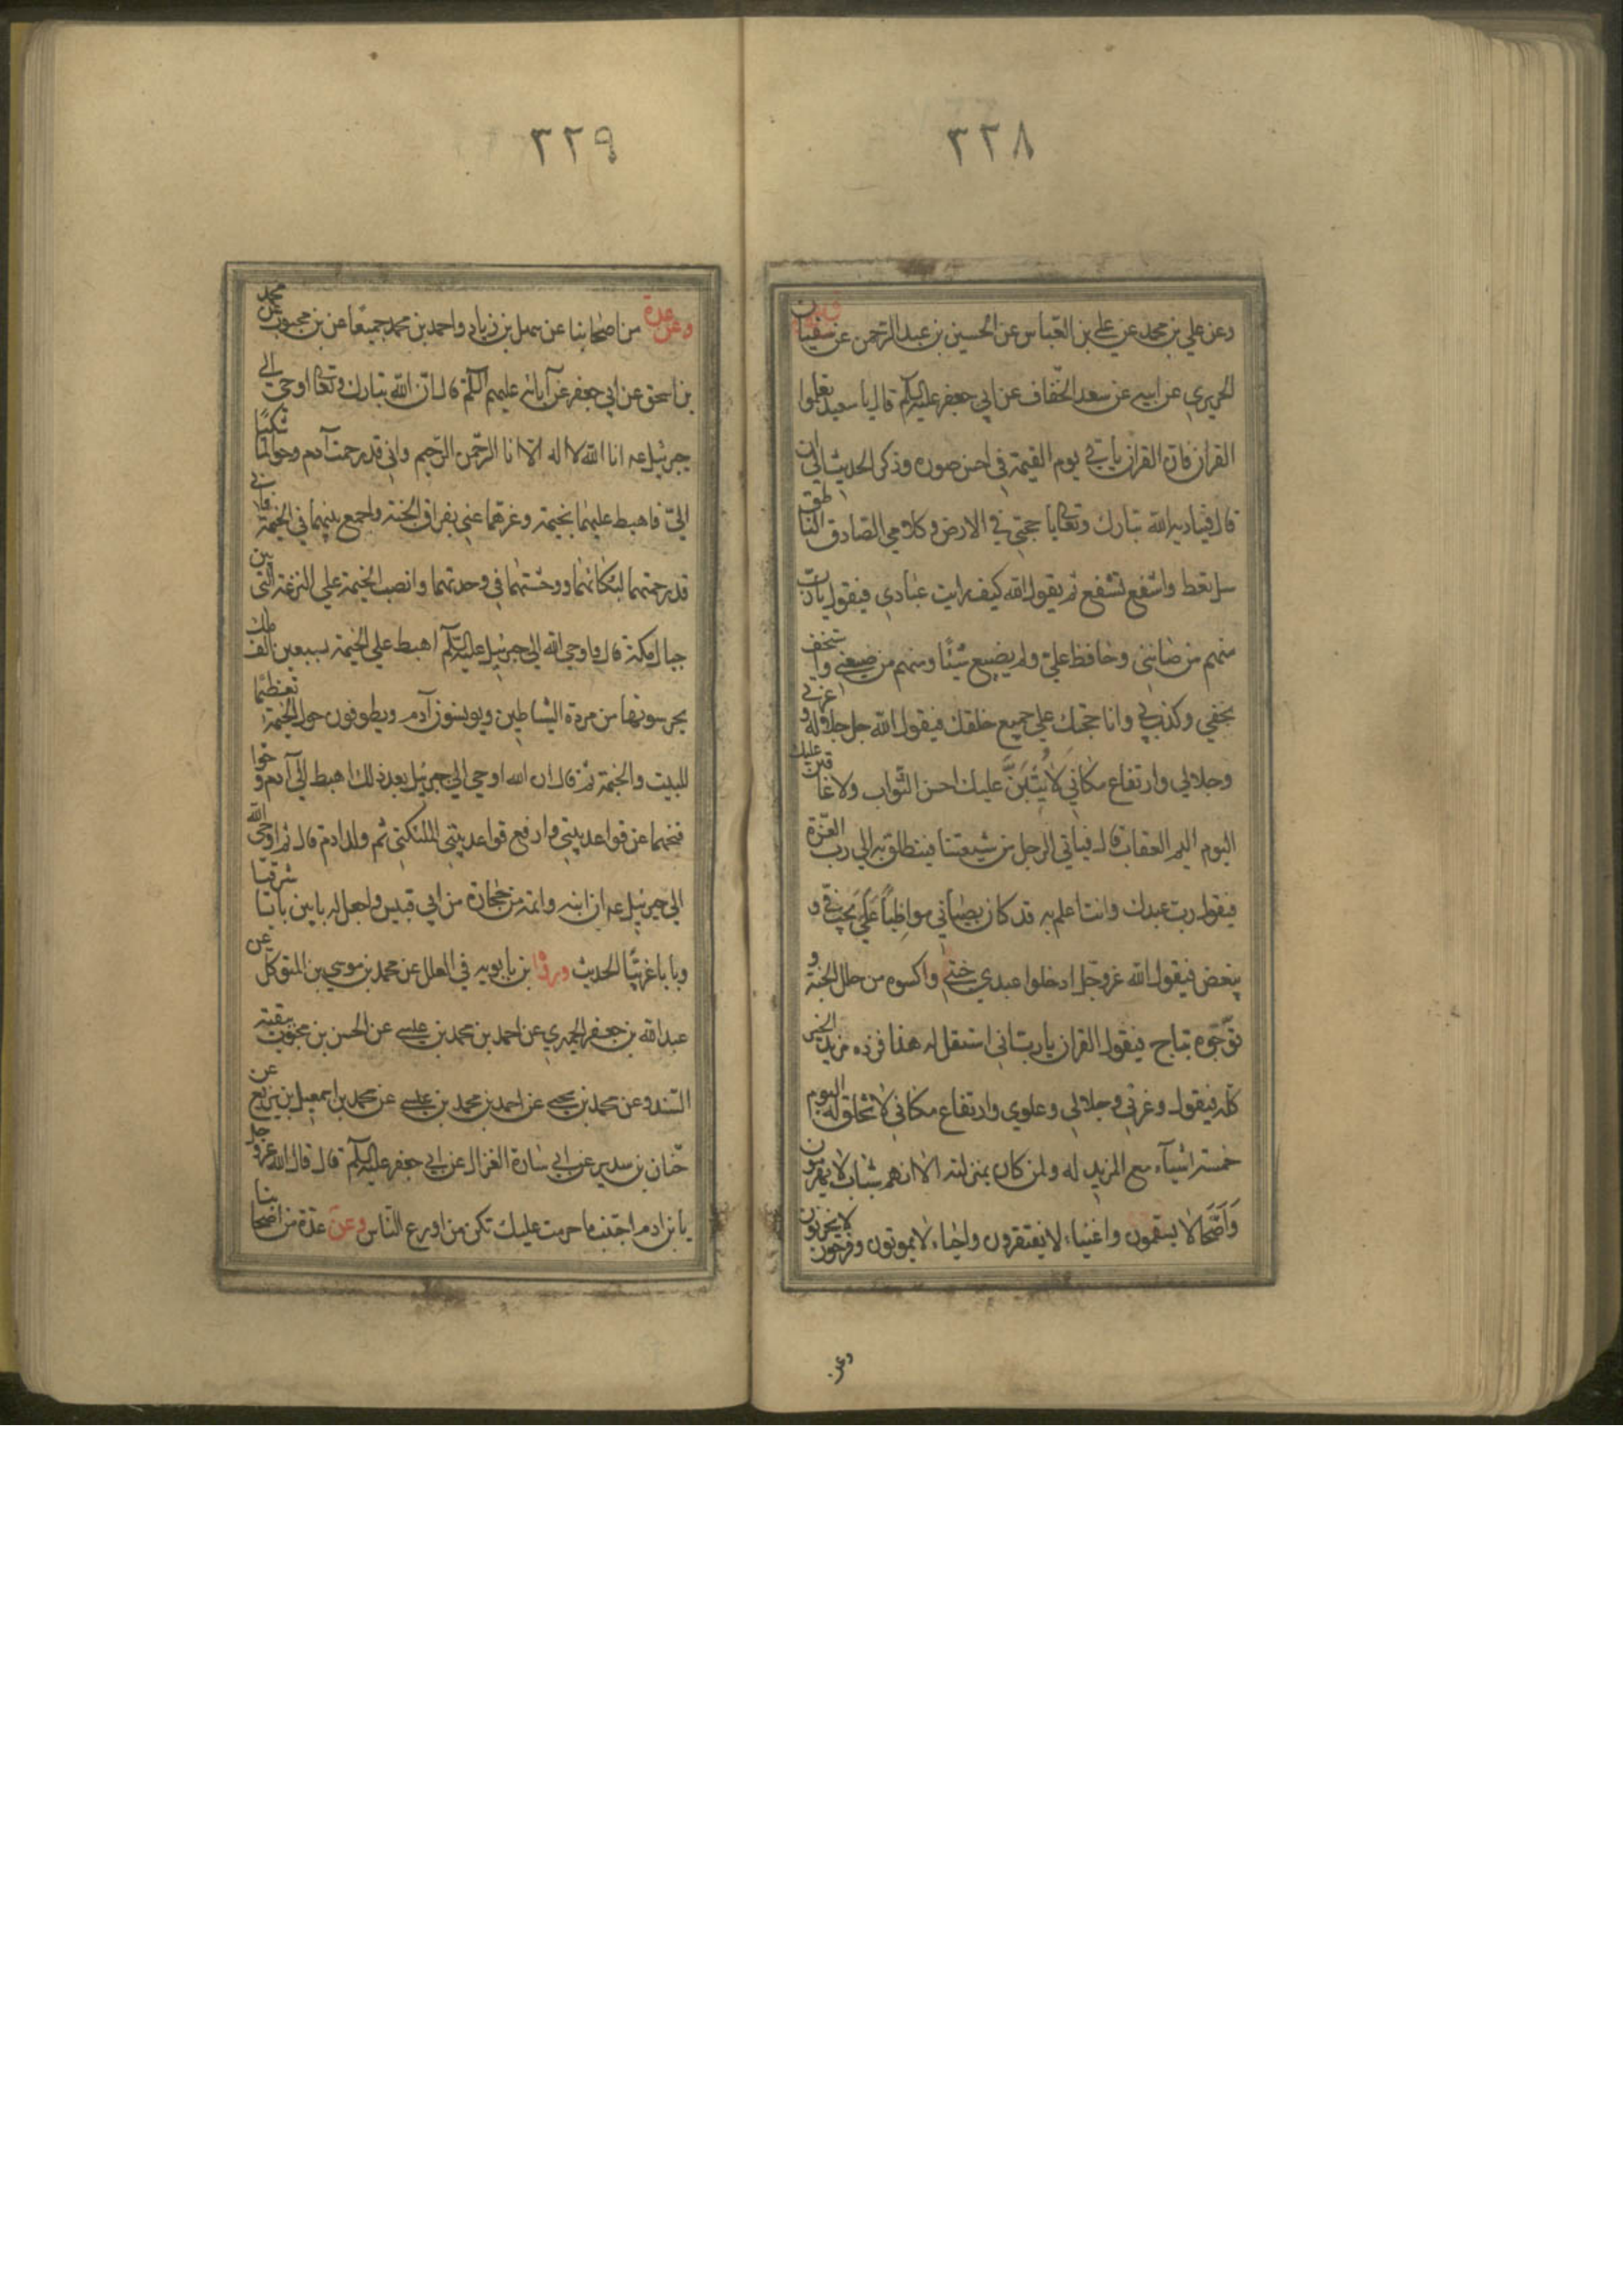 ٣٢٨
وعن علي بن محمد عن علي بن العباس عن الحسين بن عبد الرحمن عن سفيان
الحريري عن ابيه عن سعد الخفاف عن ابي جعفر عليه السلم قال يا سعد تعلموا
القران فان القران ياتي يوم القيمة في احسن صورة وذكر الحديث الى ان
قال فيناديه الله تبارك وتعالى يا حجتي في الارض وكلامي الصادق الناطق
سل تعط واشفع تشفع ثم يقول الله كيف رايت عبادي فيقول يا رب
منهم من صانني وحافظ علي ولم يضيع شيئا ومنهم من ضيعني واستخف
بحقي وكذب بي وانا حجتك علي جميع خلقك فيقول الله جل جلاله وعزتي
وجلالي وارتفاع مكاني لاثيبن عليك احسن الثواب ولاعاقبن عليك
اليوم اليم العقاب قال فياتي الرجل من شيعتنا فينطلق به الي رب العزة
فيقول رب عبدك وانت اعلم به قد كان بي مواظبا علي يحب في و
يبغض فيقول الله عز وجل ادخلوا عبدي جنتي واكسوه من حلل الجنة و
توجوه بتاج فيقول القران يا رب اني استقل له هذا فزده مزيد الخير
كله فيقول وعزتي وجلالي وعلوي وارتفاع مكاني لانحلن له اليوم
خمسة اشياء مع المزيد له ولمن كان بمنزلته الا انهم شباب لا يهرمون
واصحا لا يسقمون واغنياء لا يفتقرون وفرحون لا يحزنون واحياء لا يموتون
وعن
٣٢٩
وعن عدة من اصحابنا عن سهل بن زياد واحمد بن محمد جميعا عن بن محبوب عن محمد
بن اسحق عن ابي جعفر عن آبائه عليهم السلم قال ان الله تبارك وتعالى اوحي الي
جبرئيل عم انا الله لا اله الا انا الرحمن الرحيم واني قد رحمت آدم وحوا لما شكيا
الي فاهبط عليهما بخيمة وعزهما عني بفراق الجنة واجمع بينهما في الخيمة فاني
قد رحمتهما لبكائهما ووحشتهما في وحدتهما وانصب الخيمة علي النزعة التي بين
جبال مكة قال واوحي الله الي جبرئيل عليه السلم اهبط علي الخيمة بسبعين الف ملك
يحرسونها من مردة الشياطين ويونسون آدم ويطوفون حول الخيمة تعظيما
للبيت والخيمة ثم قال ان الله اوحي الي جبرئيل بعد ذلك اهبط الي آدم وحوا
فنحهما عن قواعد بيتي وارفع قواعد بيتي لملئكتي ثم ولد ادم قال ثم اوحي الله
الي جبرئيل عم ان ابنه واتمه من حجارة من ابي قبيس واجعل له بابين بابا شرقيا
وبابا غربيا الحديث وروا بن بابويه في العلل عن محمد بن موسي بن المتوكل عن
عبد الله بن جعفر الحميري عن احمد بن محمد بن عيسي عن الحسن بن محبوب بقية
السند وعن محمد بن يحيي عن احمد بن محمد بن عيسي عن محمد بن اسمعيل بن بزيع عن
حنان بن سدير عن ابي سارة الغزال عن ابي جعفر عليه السلم قال قال الله عز وجل
يا بن ادم اجتنب ما حرمت عليك تكن من اورع الناس وعن عدة من اصحابنا